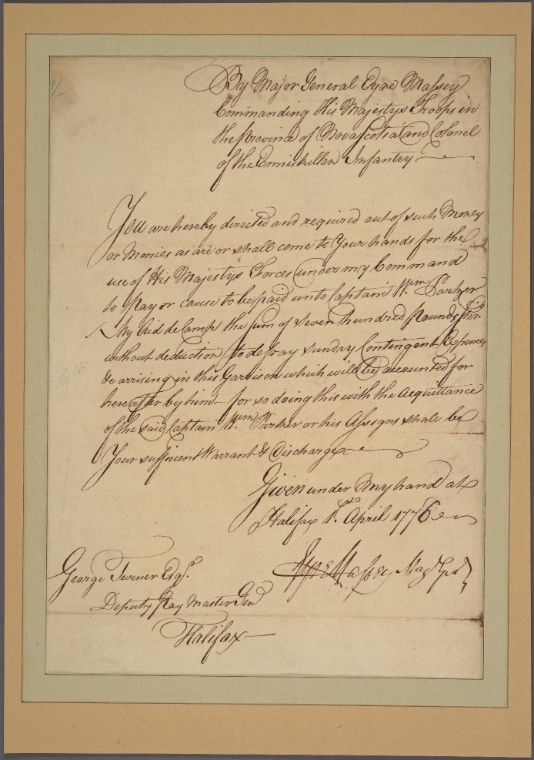 By Major General Eyre Massey
Commanding His Majestys Troops in
the Province of Nova Scotia and Colonel
of the Enniskillen Infantry
You are hereby directed and required out of such Money
or Monies as are or shall come to Your hands for the
use of His Majestys Forces under my Command
to Pay or cause to be paid unto Captain Wm. Parker
My Aid de Camp the sum of seven hundred Pounds
without deduction to defray sundry Contingent Expences
&c arising in this Garrison which will be accounted for
hereafter by him for so doing this with the Acquittance
of the said Captain Wm. Parker or his Assigns shall be
Your sufficient Warrant & Discharge
Given under My hand at
Halifax 1st April 1776
Eyre Massey Maj Genl
George Turner Esqr.
Deputy Pay Master Genl
Halifax